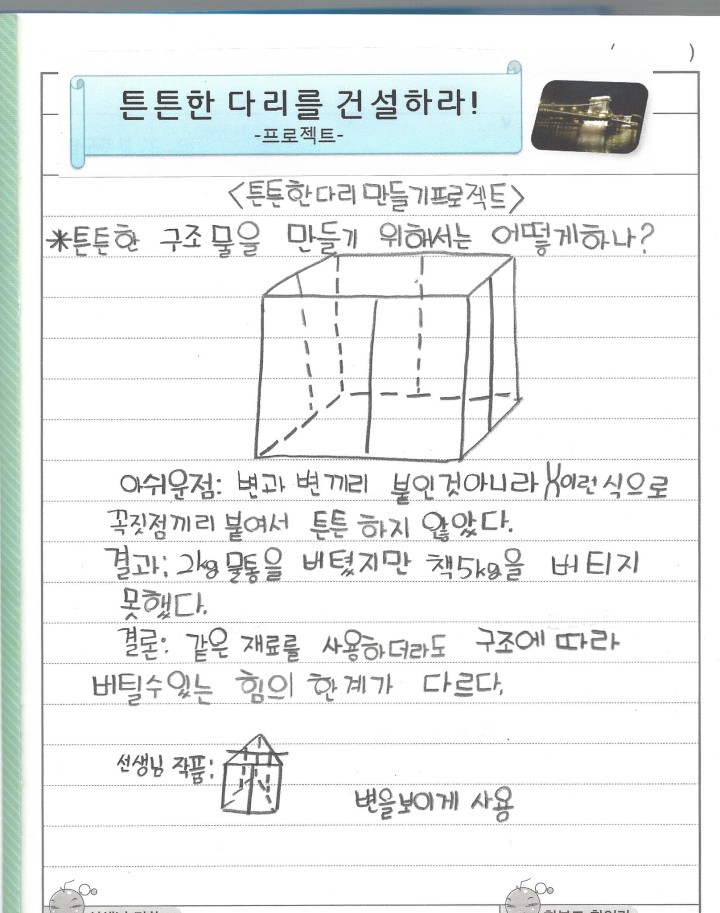 )
튼튼한 다리를 건설하라!
-프로젝트-
<튼튼한다리 만들기프로젝트>
*튼튼한 구조물을 만들기 위해서는 어떻게하나?
아쉬운점: 변과 변끼리 붙인것아니라 이런식으로
꼭짓점끼리 붙여서 튼튼하지 않았다.
결과: 2kg물통을 버텼지만 책5kg을 버티지
못했다.
결론: 같은 재료를 사용하더라도 구조에 따라
버틸수있는 힘의 한계가 다르다.
선생님 작품:
변을보이게 사용